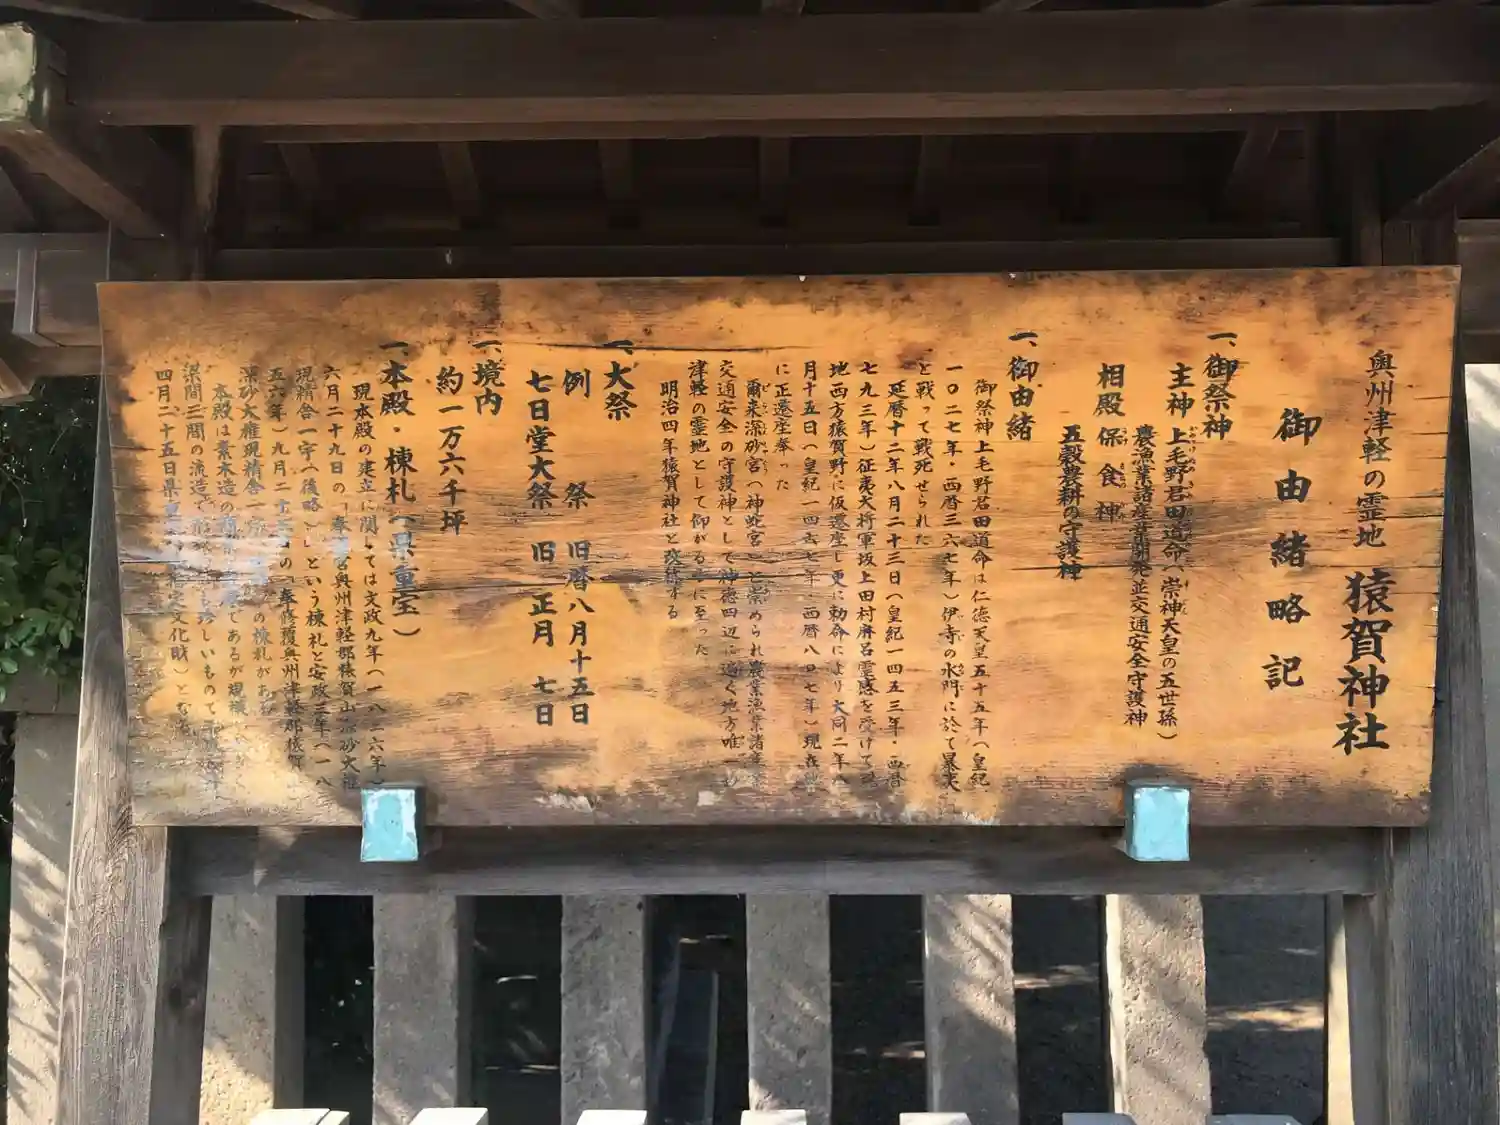 奥州津軽の霊地 猿賀神社
御由緒略記
一、御祭神
主神 上毛野君田道命(崇神天皇の五世孫)
農漁業諸産業開発並交通安全守護神
相殿 保食神
五穀農耕の守護神
一、御由緒
御祭神上毛野君田道命は仁徳天皇五十五年(皇紀
一〇二七年・西暦三六七年)伊寺の水門に於て暴夷
と戦って戦死せられた
延暦十二年八月二十三日(皇紀一四五三年・西暦
七九三年)征夷大将軍坂上田村麻呂霊感を受けて
地西方猿賀野に仮遷座し更に勅命により大同二年八
月十五日(皇紀一四六七年・西暦八〇七年)現在
に正遷座奉った
爾来深砂宮(神蛇宮)と崇められ農業漁業諸産業
交通安全の守護神として神徳四辺に遍く地方唯一
津軽の霊地として仰がるるに至った
明治四年猿賀神社と改称する
一、大祭
例祭 旧暦八月十五日
七日堂大祭 旧正月七日
一、境内
約一万六千坪
一、本殿・棟札(県重宝)
現本殿の建立に関しては文政九年(一八二六年)
六月二十九日の「奉 宮奥州津軽郡猿賀山深砂大権
現精舎一宇(後略)」という棟札と安政三年(一八
五六年)九月二十 日の「奉修覆奥州津軽郡猿賀
深砂大権現精舎一宇 の棟札がある
本殿は素木造の であるが規模
梁間三間の流造で 珍しいもので
四月二十五日県重 文化財)となる